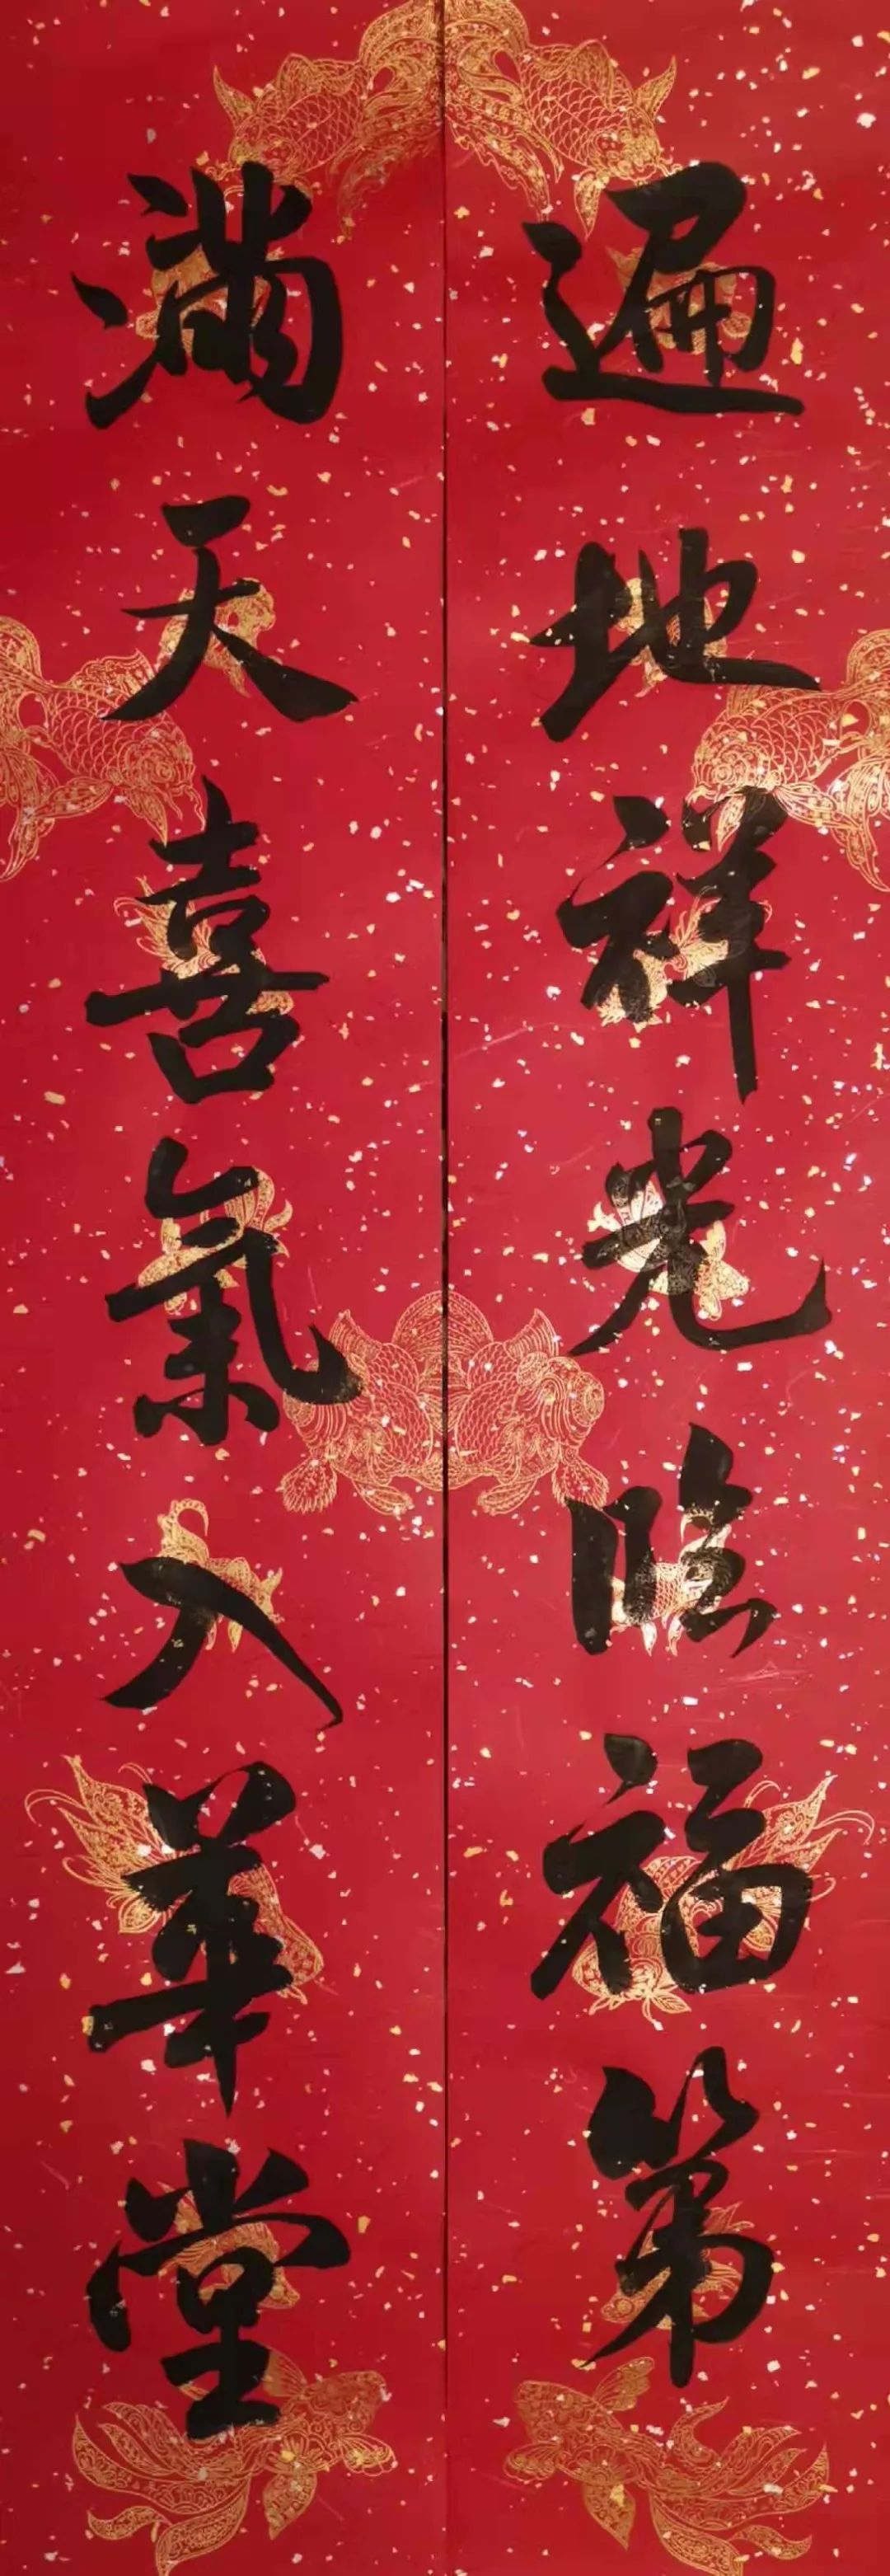 遍地祥光臨福第
滿天喜氣入華堂